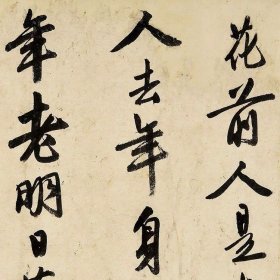 花前人是
人去年身
年老明日